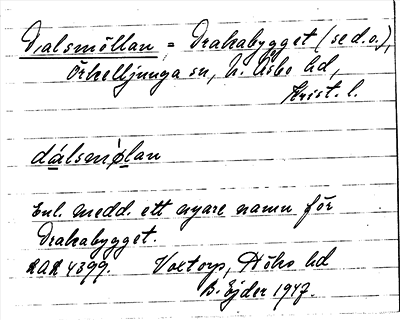 Dalsmöllan = Drakabygget (se d.o.),
Örkelljunga sn, N. Åsbo hd,
Krist. l.
dálsmø̀lan
Enl. medd. ett nyare namn för
Drakabygget.
4399. Voxtorp, Höks hd
B. Ejder 1947.